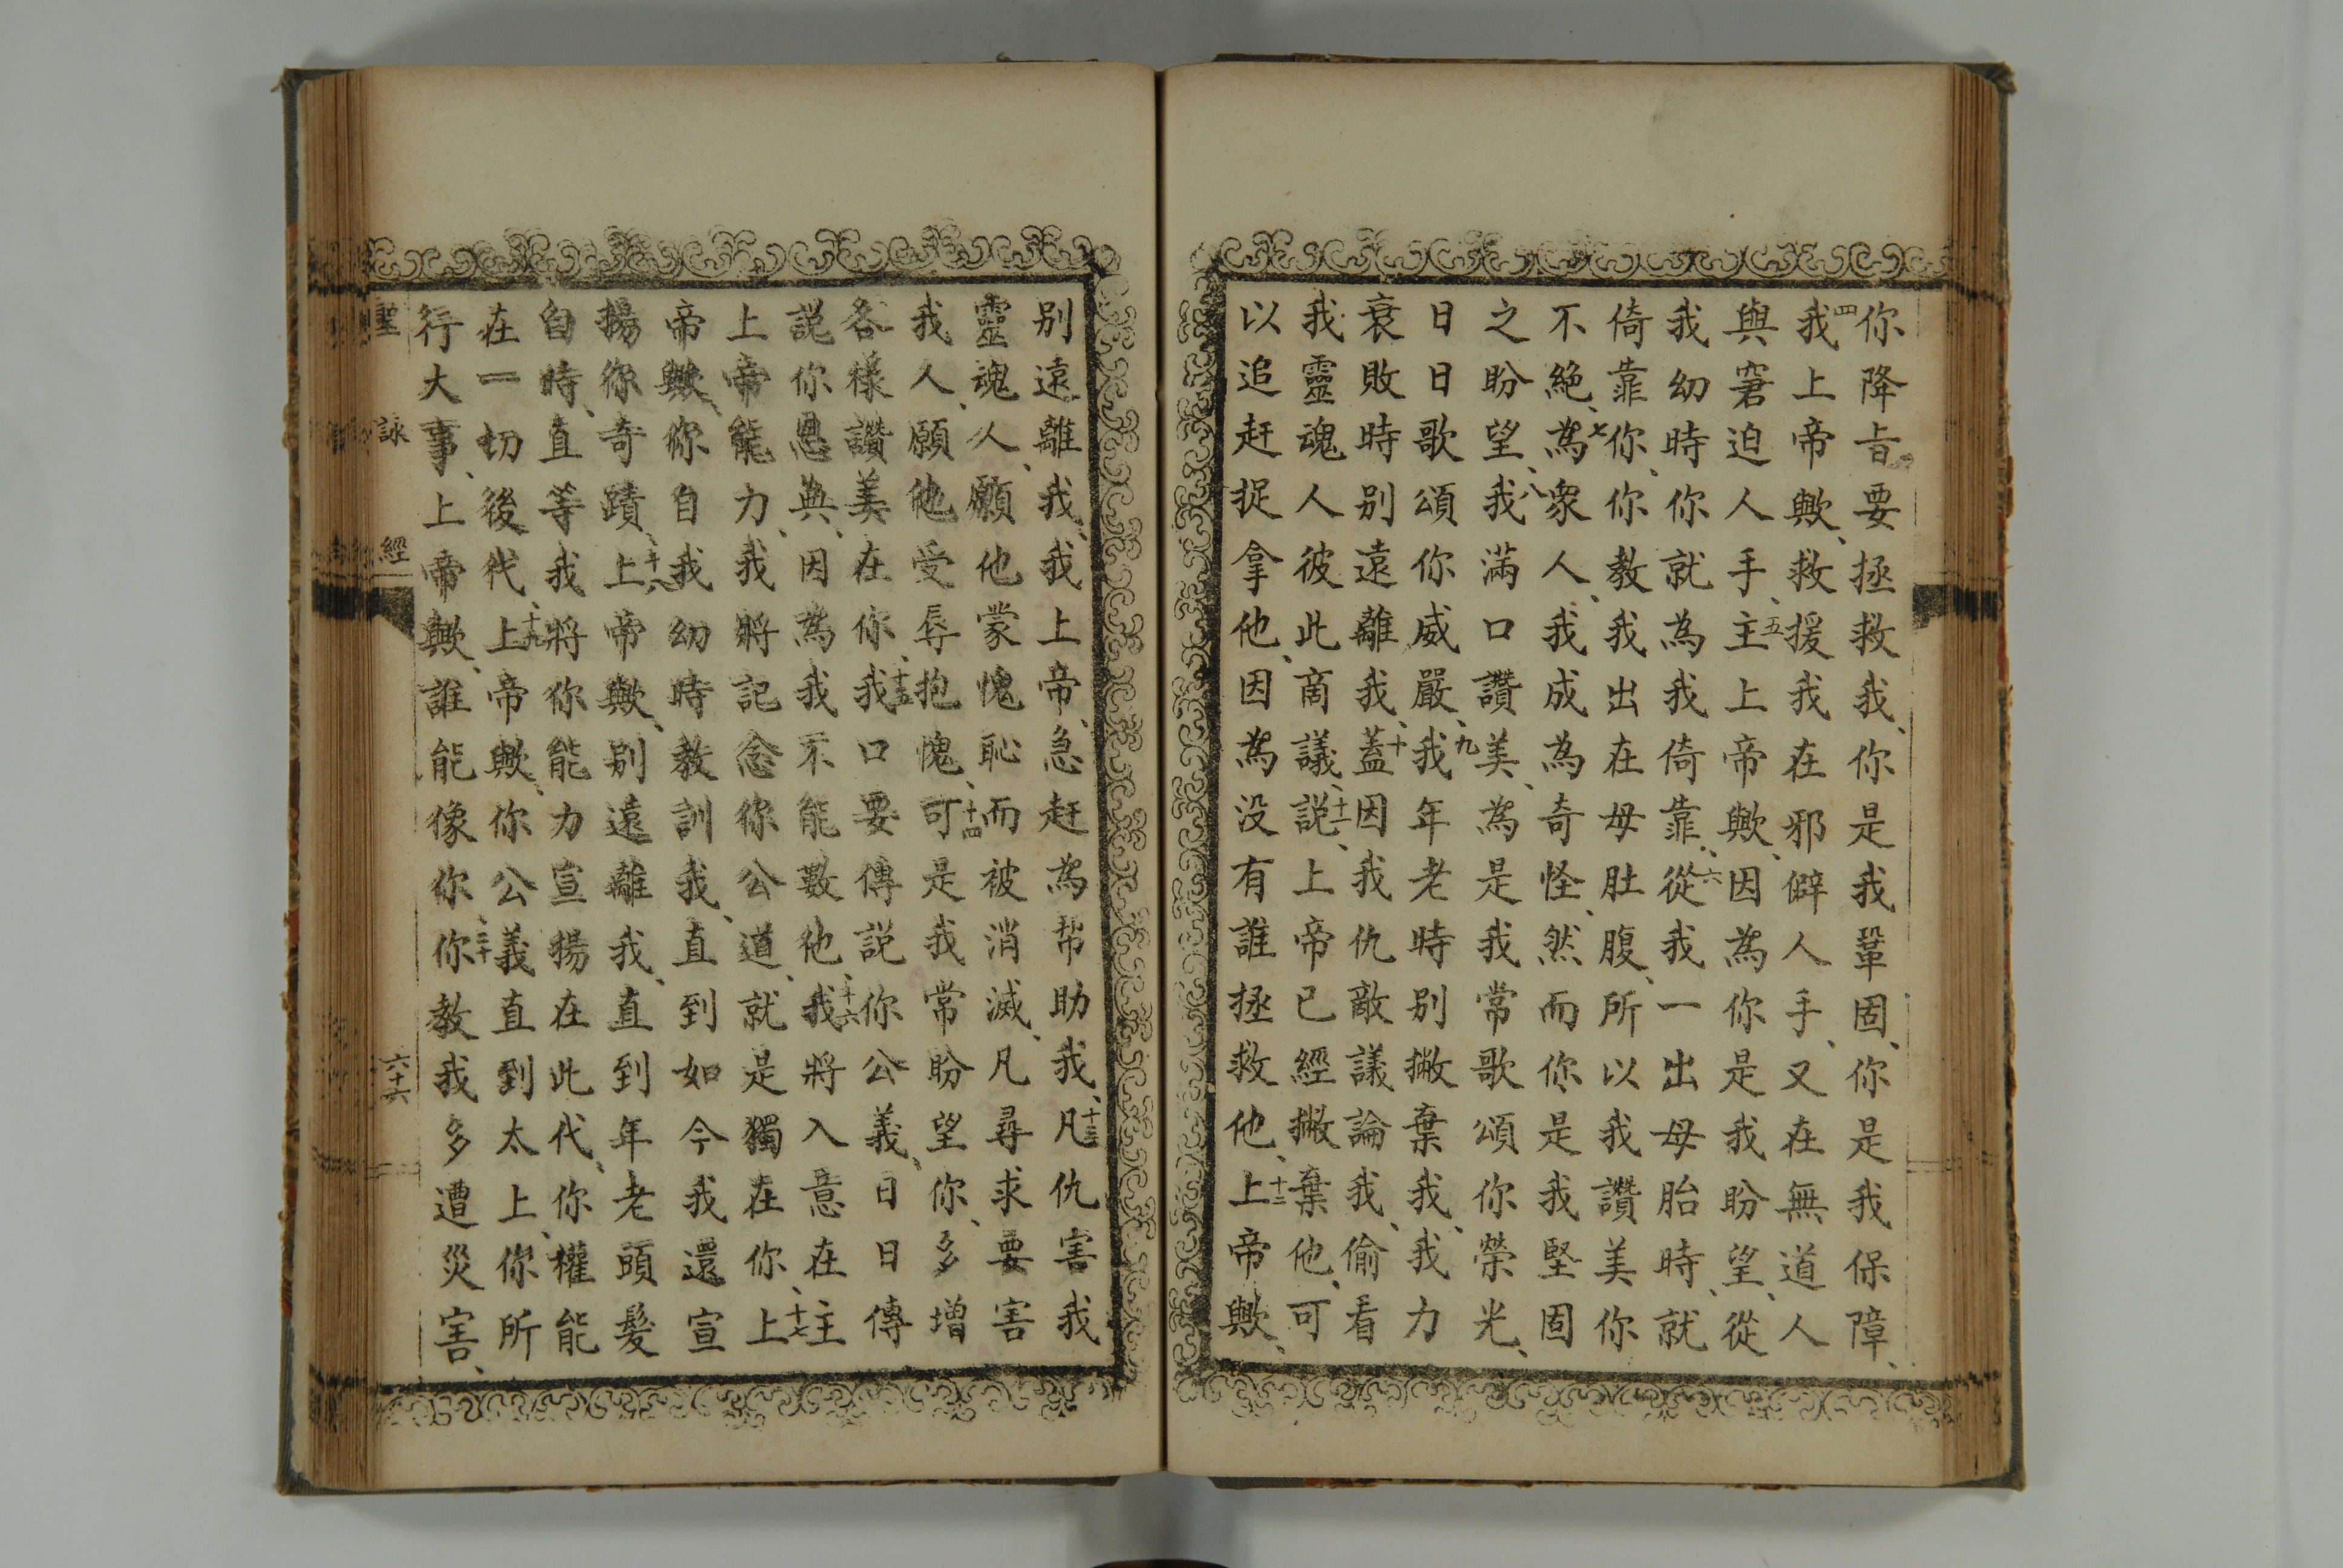 你降旨要拯救我、你是我鞏固、你是我保障、
四我上帝歟、救援我在邪僻人手、又在無道人
與窘迫人手、五主上帝歟、因為你是我盼望、從
我幼時你就為我倚靠、六從我一出母胎時、就
倚靠你、你教我出在母肚腹、所以我讚美你
不絕、七為衆人、我成為奇怪、然而你是我堅固
之盼望、八我滿口讚美、為是我常歌頌你榮光、
日日歌頌你威嚴、九我年老時別撇棄我、我力
衰敗時别遠離我、十蓋因我仇敵議論我、偷看
我靈魂人彼此商議、十一説、上帝已經撇棄他、可
以追赶捉拿他、因為没有誰拯救他、十二上帝歟、
别遠離我、我上帝、急赶為帮助我、十三凡仇害我
靈魂人、願他蒙愧恥而被消滅、凡尋求要害
我人、願他受辱抱愧、十四可是我常盼望你、多增
各樣讚美在你、十五我口要傳説你公義、日日傳
説你恩典、因為我不能數他、十六我將入意在主
上帝能力、我將記念你公道、就是獨在你、十七上
帝歟、你自我幼時教訓我、直到如今我還宣
揚你奇蹟、十八上帝歟、别遠離我、直到年老頭髮
白時、直等我將你能力宣揚在此代、你權能
在一切後代、十九上帝歟、你公義直到太上、你所
行大事、上帝歟、誰能像你、二十你教我多遭災害、
聖詠經 六十六